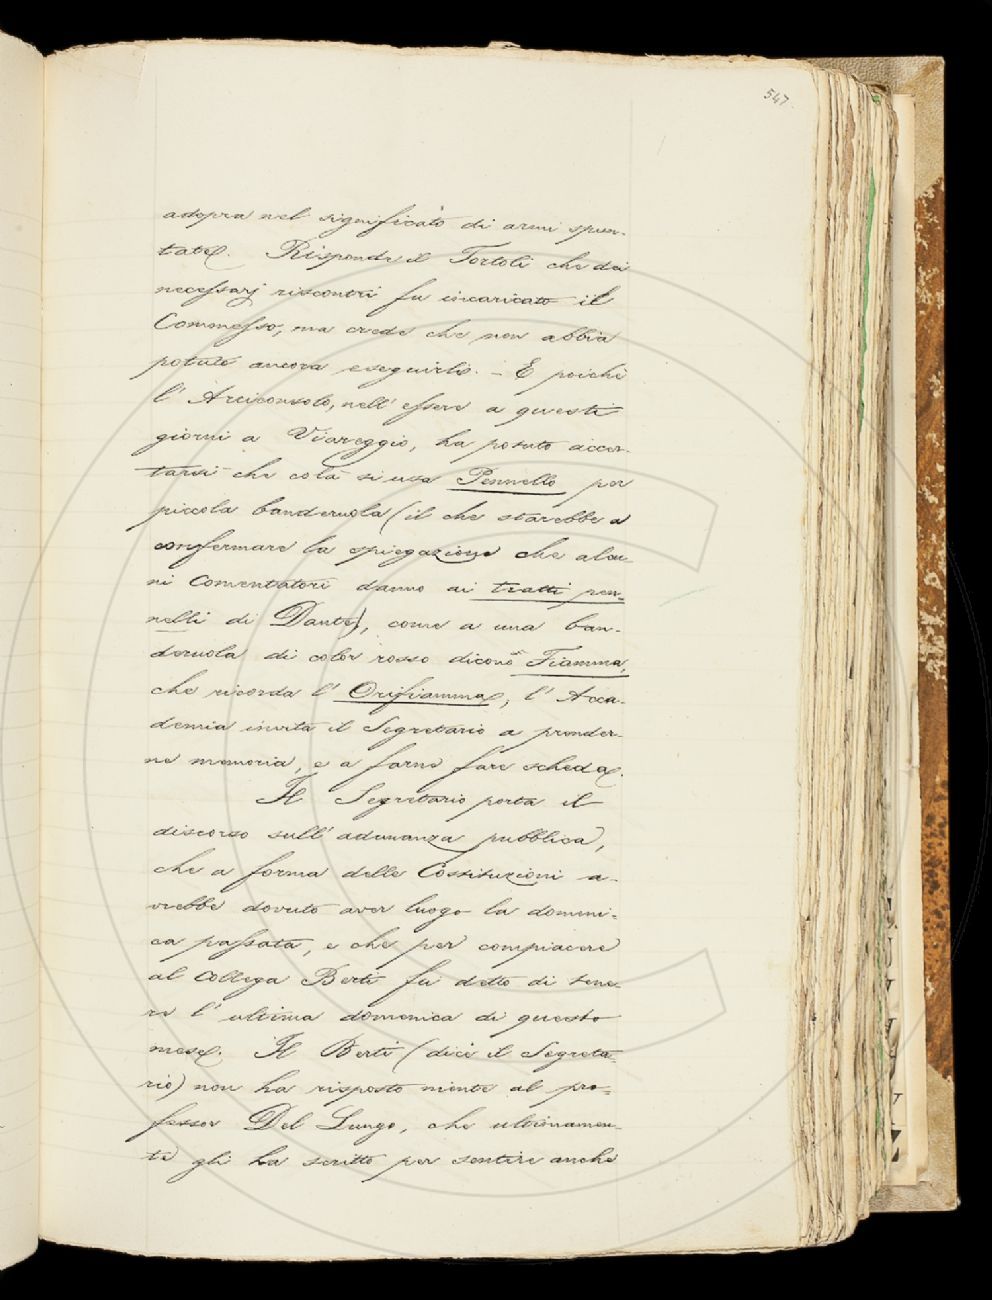 547.
adopra nel significato di armi spun-
tate. Risponde il Tortoli che dei
necessarj riscontri fu incaricato il
Commesso, ma crede che non abbia
potuto ancora eseguirli. – E poichè
l' Arciconsolo, nell' essere a questi
giorni a Viareggio, ha potuto accer-
tarsi che colà si usa Pennello per
piccola banderuola (il che starebbe a
confermare la spiegazione che alcu-
ni Comentatori danno ai tratti pen-
nelli di Dante), come a una ban-
deruola di color rosso dicono Fiamma,
che ricorda l' Orifiamma, l' Acca-
demia invita il Segretario a prender-
ne memoria, e a farne fare scheda.
Il Segretario porta il
discorso sull' adunanza pubblica,
che a forma delle Costituzioni a-
vrebbe dovuto aver luogo la domeni-
ca passata, e che per compiacere
al Collega Berti fu detto di tene-
re l' ultima domenica di questo
mese. Il Berti (dice il Segreta-
rio) non ha risposto niente al pro-
fessor Del Lungo, che ultimamen-
te gli ha scritto per sentire anche